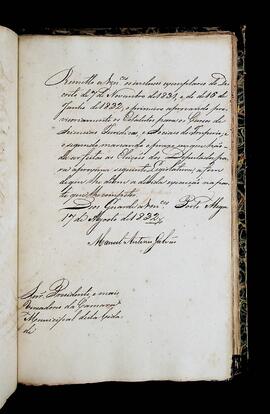 Remetto a Vm.ces os inclusos exemplares do De
creto de 7 de Novembro de 1831, e do de 15 de
Junho de 1832, o primeiro approvando pro
visoriamente os Estatutos para os Cursos de
Sciencias Juridicas, e Sociaes do Imperio; e o
segundo marcando o prazo em que hão
de ser feitas as Eleições dos Deputados pa
ra a proxima seguinte Legislatura, a fim
de que lhe dêem a devida execução na par
te que lhe competir.
Deos Guarde a Vm.ces Porto Alegre
17 de Agosto de 1832
Manoel Antonio Galvão
Snr. Presidente, e mais
Vereadores da Camara
Municipal desta Cida
de